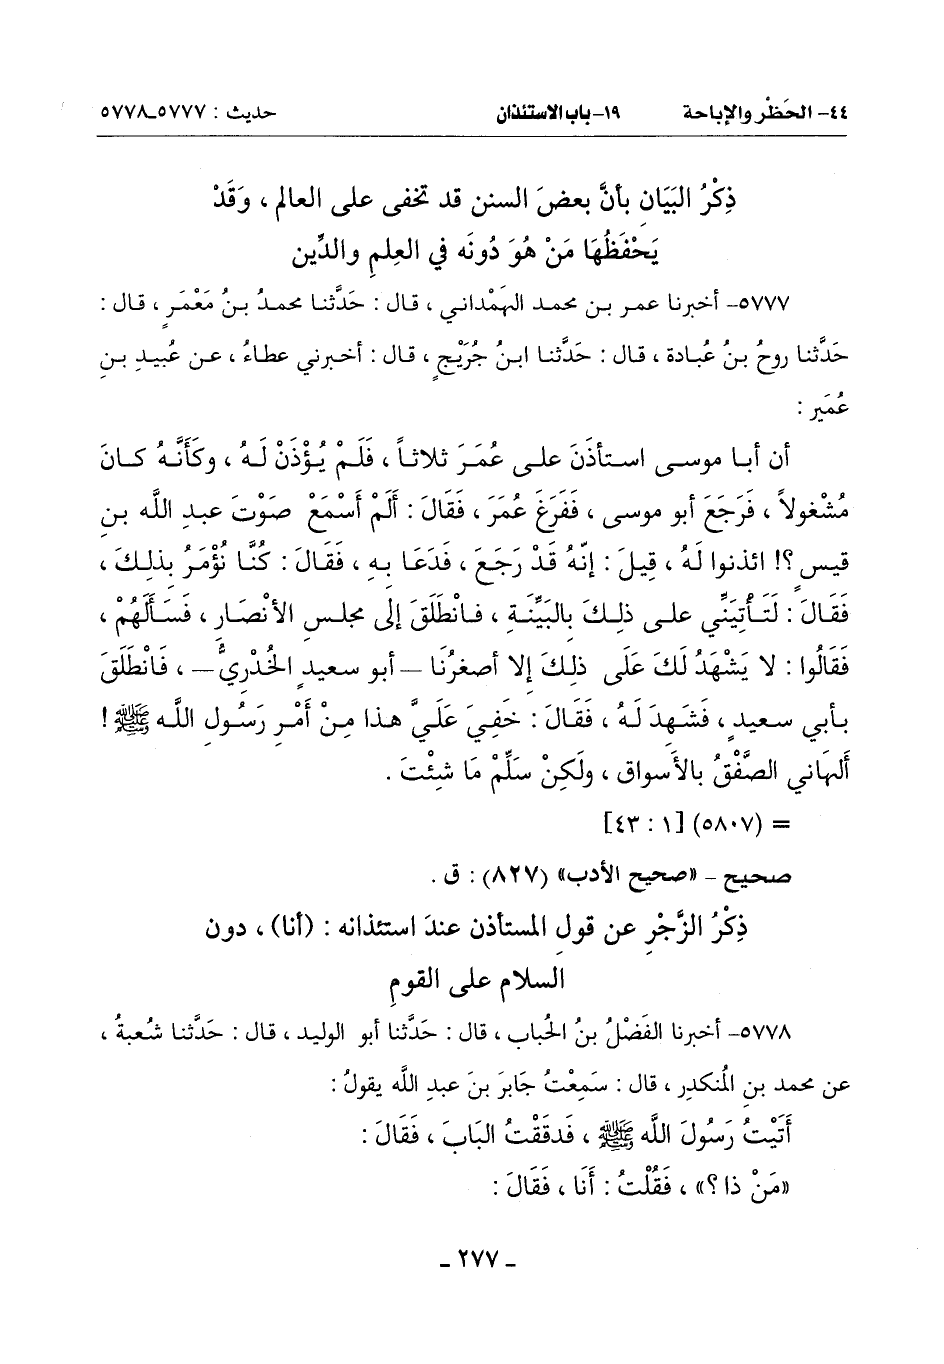 ٤٤- الحَظْر والإباحة ١٩-باب الاستئذان حديث : ٥٧٧٧ـ٥٧٧٨
ذِكْرُ البَيَان بأنَّ بعضَ السنن قد تخفى على العالم ، وَقَدْ
يَحْفَظُهَا مَنْ هُوَ دُونَه في العِلمِ والدِّين
٥٧٧٧- أخبرنا عمر بن محمد الهَمْداني ، قال : حَدَّثنا محمدُ بنُ مَعْمَرٍ ، قال :
حَدَّثنا روحُ بنُ عُبادة ، قال : حَدَّثنا ابنُ جُرَيْجٍ ، قال : أخبرني عطاءُ ، عن عُبيدِ بنِ
عُمَير :
أن أبا موسى استأذَنَ على عُمَرَ ثلاثاً ، فَلَمْ يُؤْذَنْ لَهُ ، وكَأَنَّهُ كانَ
مُشْغولاً ، فَرَجَعَ أبو موسى ، فَفَرَغَ عُمَرَ ، فَقَالَ : أَلَمْ أَسْمَعْ صَوْتَ عبدِ اللَّه بن
قيسٍ ؟! ائذنوا لَهُ ، قِيلَ : إنّهُ قَدْ رَجَعَ ، فَدَعَا بِهِ ، فَقَالَ : كُنَّا نُؤْمَرُ بذلِكَ ،
فَقَالَ : لَتَأْتِيَنِّي على ذلِكَ بالبَيِّنَةِ ، فانْطَلَقَ إلى مجلسِ الأنْصَارِ ، فَسَأَلَهُمْ ،
فَقَالُوا : لا يَشْهَدُ لَكَ عَلَى ذلِكَ إلا أصغرُنَا – أبو سعيدٍ الخُدْريُّ – ، فَانْطَلَقَ
بأبي سعيدٍ ، فَشَهِدَ لَهُ ، فَقَالَ : خَفِيَ عَلَيَّ هذا مِنْ أمْرِ رَسُولِ اللَّه ﷺ !
أَلهَاني الصَّفْقُ بالأَسواق ، ولَكِنْ سَلِّمْ مَا شئْتَ .
= (٥٨٠٧) [١ : ٤٣]
صحيح – «صحيح الأدب» (٨٢٧) : ق .
ذِكْرُ الزَّجْرِ عن قولِ المستأذن عندَ استئذانه : (أنا) ، دون
السلام على القومِ
٥٧٧٨- أخبرنا الفَضْلُ بنُ الحُباب ، قال : حَدَّثنا أبو الوليد ، قال : حَدَّثنا شُعبةُ ،
عن محمد بنِ المُنكدِر ، قال : سَمِعْتُ جَابرَ بنَ عبدِ اللَّه يقولُ :
أَتَيْتُ رَسُولَ اللَّه ﷺ ، فَدقَقْتُ البَابَ ، فَقَالَ :
«مَنْ ذا ؟» ، فَقُلْتُ : أَنَا ، فَقَالَ :
ـ ٢٧٧ ـ